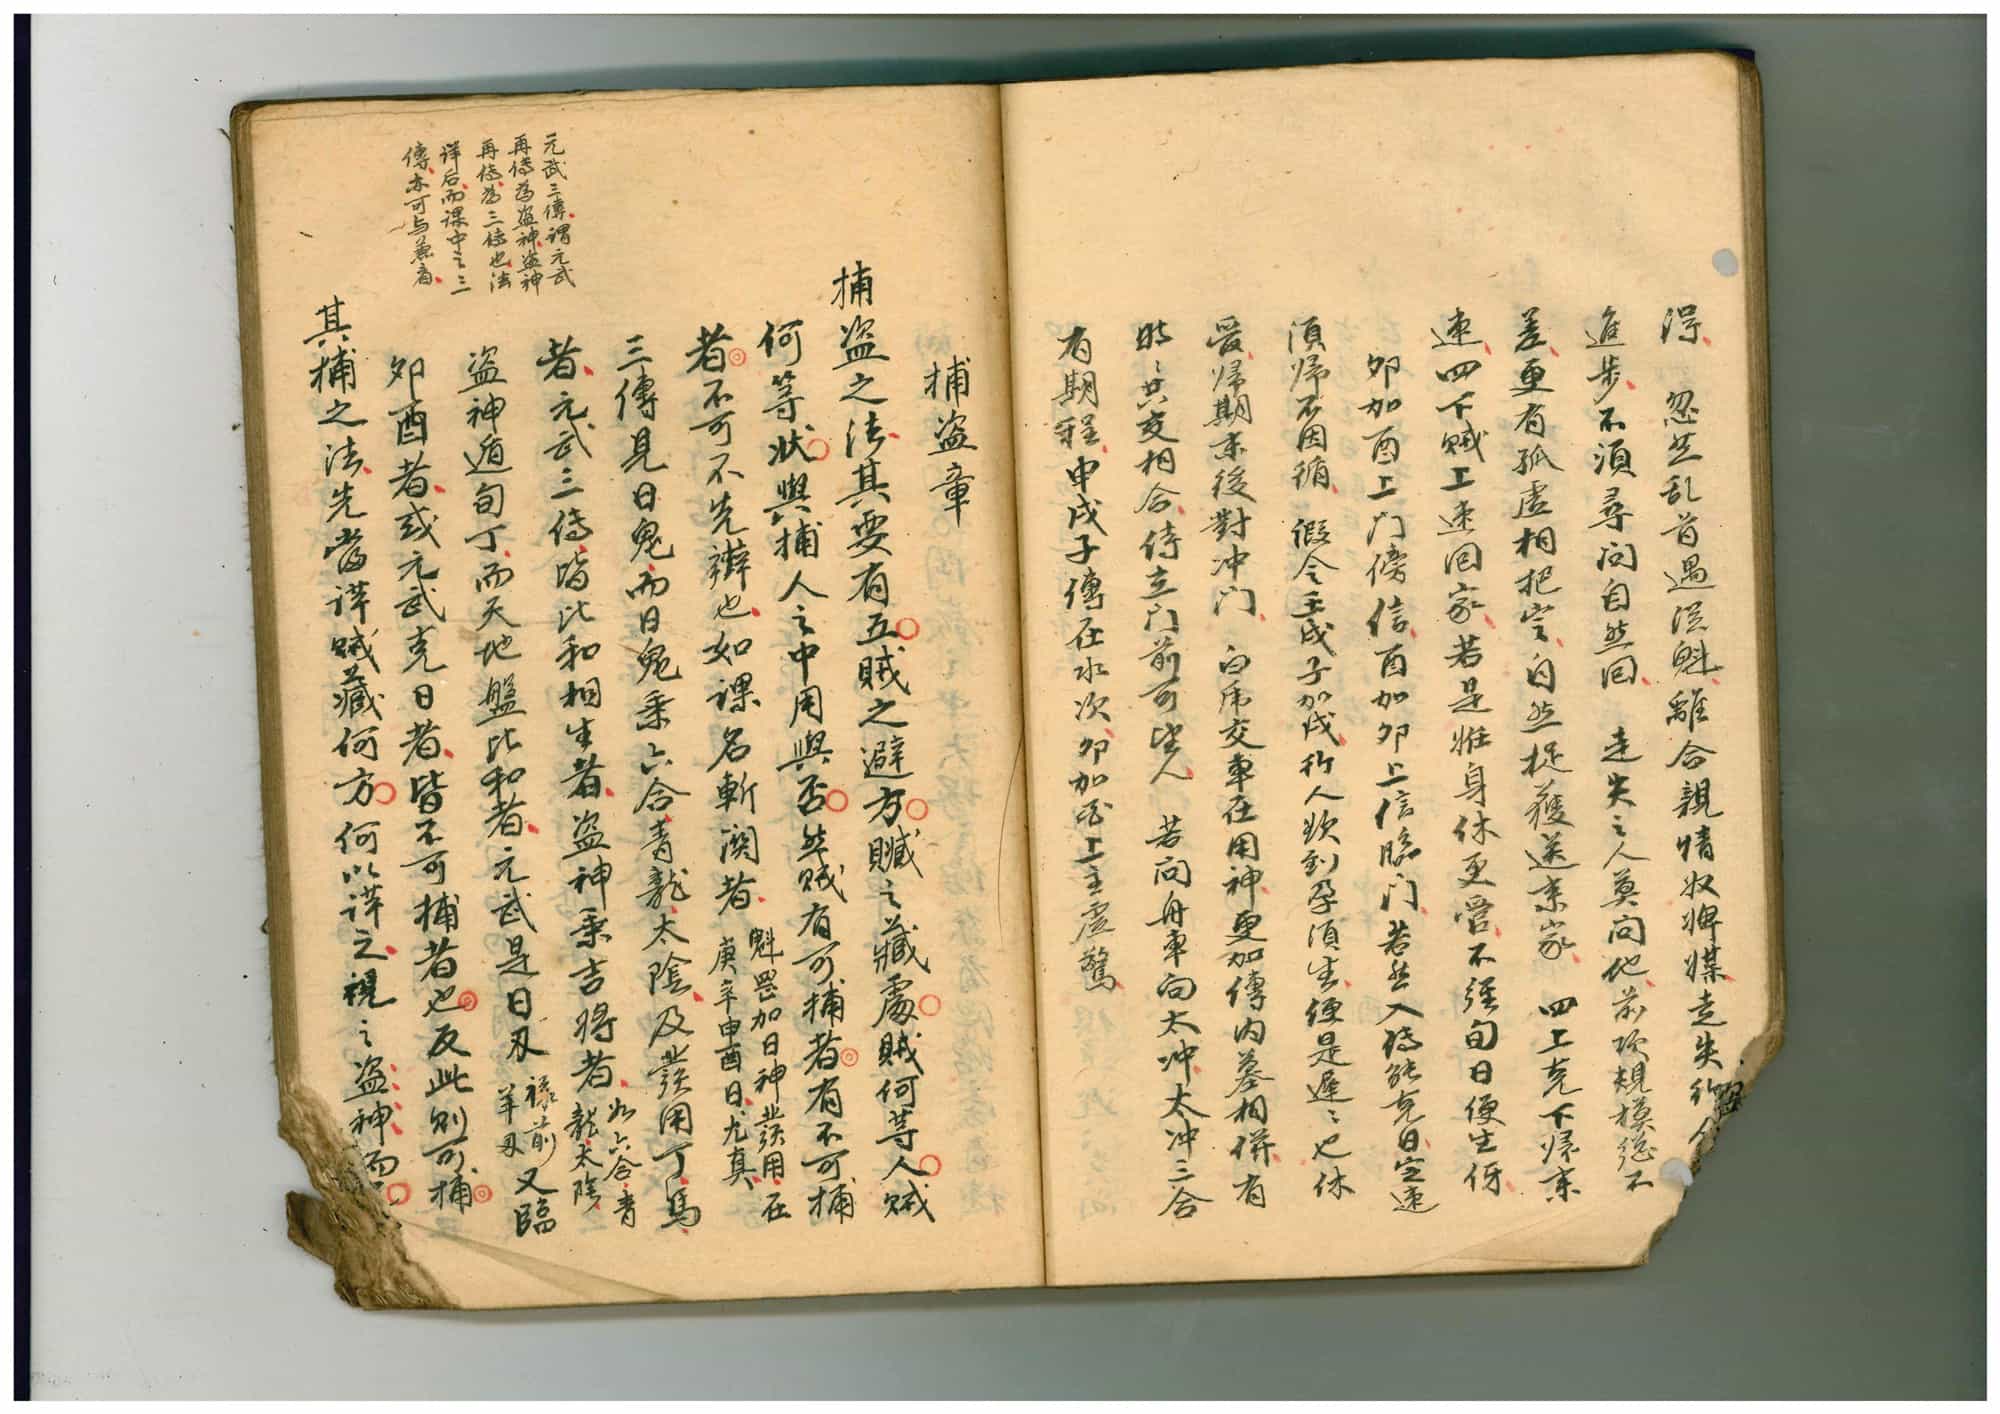 得 忽然乱首遇從魁離合親情奴婢媒走失
進步不須尋问自然回 走失之人莫问他前攻規模總不
差更有孤虛相把定自然捉獲送来家 四上克下歸来
速四下賊上速回家若是惟身休更管不經旬日便生伢
卯加酉上门傍信酉加卯上信臨门若然入傳能克日定速
須歸不因循 假令壬戌子加戌行人欲到孕須生便是遲遲也休
憂歸期末後對冲门 白虎交車在用神更加傳内墓相併有
時時其交相合待立门前可望人 若问舟車向太冲太冲三合
有期程申戌子傳在水次卯加 上主虛驚
捕盗章
捕盗之法其要有五賊之避方贓之藏處賊何等人賊
何等狀與捕人之中用與否然賊有可捕者有不可捕
者不可不先辨也如課名斬関者魁罡加日神發用在庚辛申酉日尤真
三傳見日鬼而日鬼乘六合青龍太陰及發用丁馬
者元武三傳皆比和相生者盗神乘吉将者如六合青龍太陰
盗神遁旬丁而天地盤比和者元武是日刃禄前羊刃又臨
卯酉者或元武克日者皆不可捕者也反此則可捕
其捕之法先當詳賊藏何方何以詳之視之盗神而
元武三傳謂元武
再傳為盗神盗神
再傳為三傳也法
详后而課中之三
傳亦可与兼看